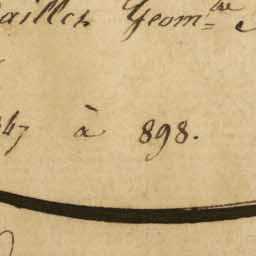 aillet Géom.re
47 à 898.